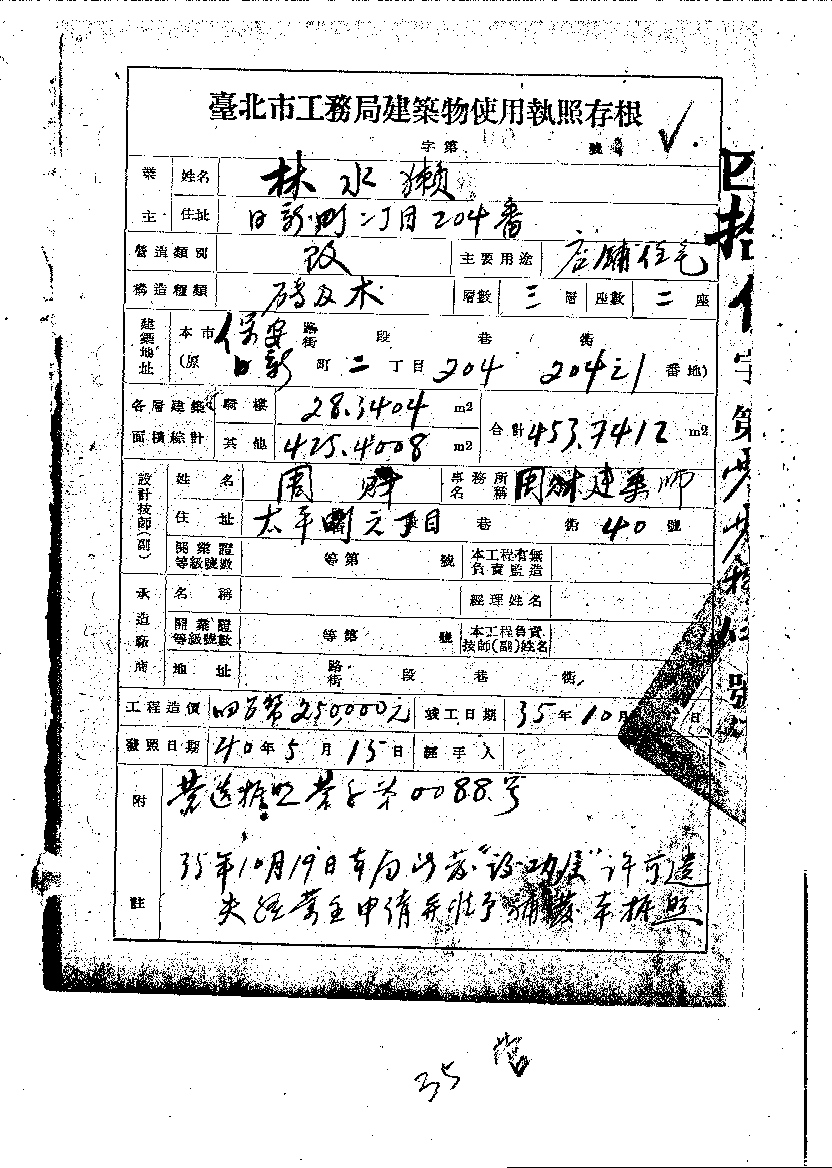 臺北市工務局建築物使用執照存根
字第 號
業主 姓名 林水獺
住址 日新町二丁目204番
營造類別 改 主要用途 店鋪住宅
構造種類 磚及木 層數 三 層 座數 二 座
建築地址 本市 保安 路街 段 巷 街
(原 日新 町 二 丁目 204 204之1 番地)
各層建築面積綜計 騎樓 28.3404 m2 合計 453.7412 m2
其他 425.4008 m2
設計技師(副) 姓名 周 事務所名稱 周 建築師
住址 太平町 元丁目 巷 街 40 號
開業證等級號數 等第 號 本工程有無負責監造
承造廠商 名稱 經理姓名
開業證等級號數 等第 號 本工程負責技師(副)姓名
地址 路街 段 巷 街
工程造價 250,000元 竣工日期 35年10月 日
發照日期 40年5月15日 經手人
附註 營造執照營字第0088号
35年10月19日本局 許可遺
失經業主申請 准予補發本執照
四拾
字第
號
35